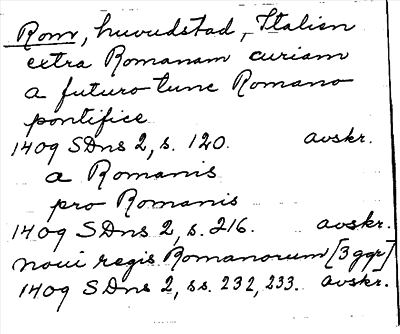 Rom, huvudstad, Italien
extra Romanam curiam
a futuro tunc Romano
pontifice
1409 SDns 2, s. 120. avskr.
a Romanis
pro Romanis
1409 SDns 2, s. 216. avskr.
noui regis Romanorum [3 ggr]
1409 SDns 2, ss. 232, 233. avskr.